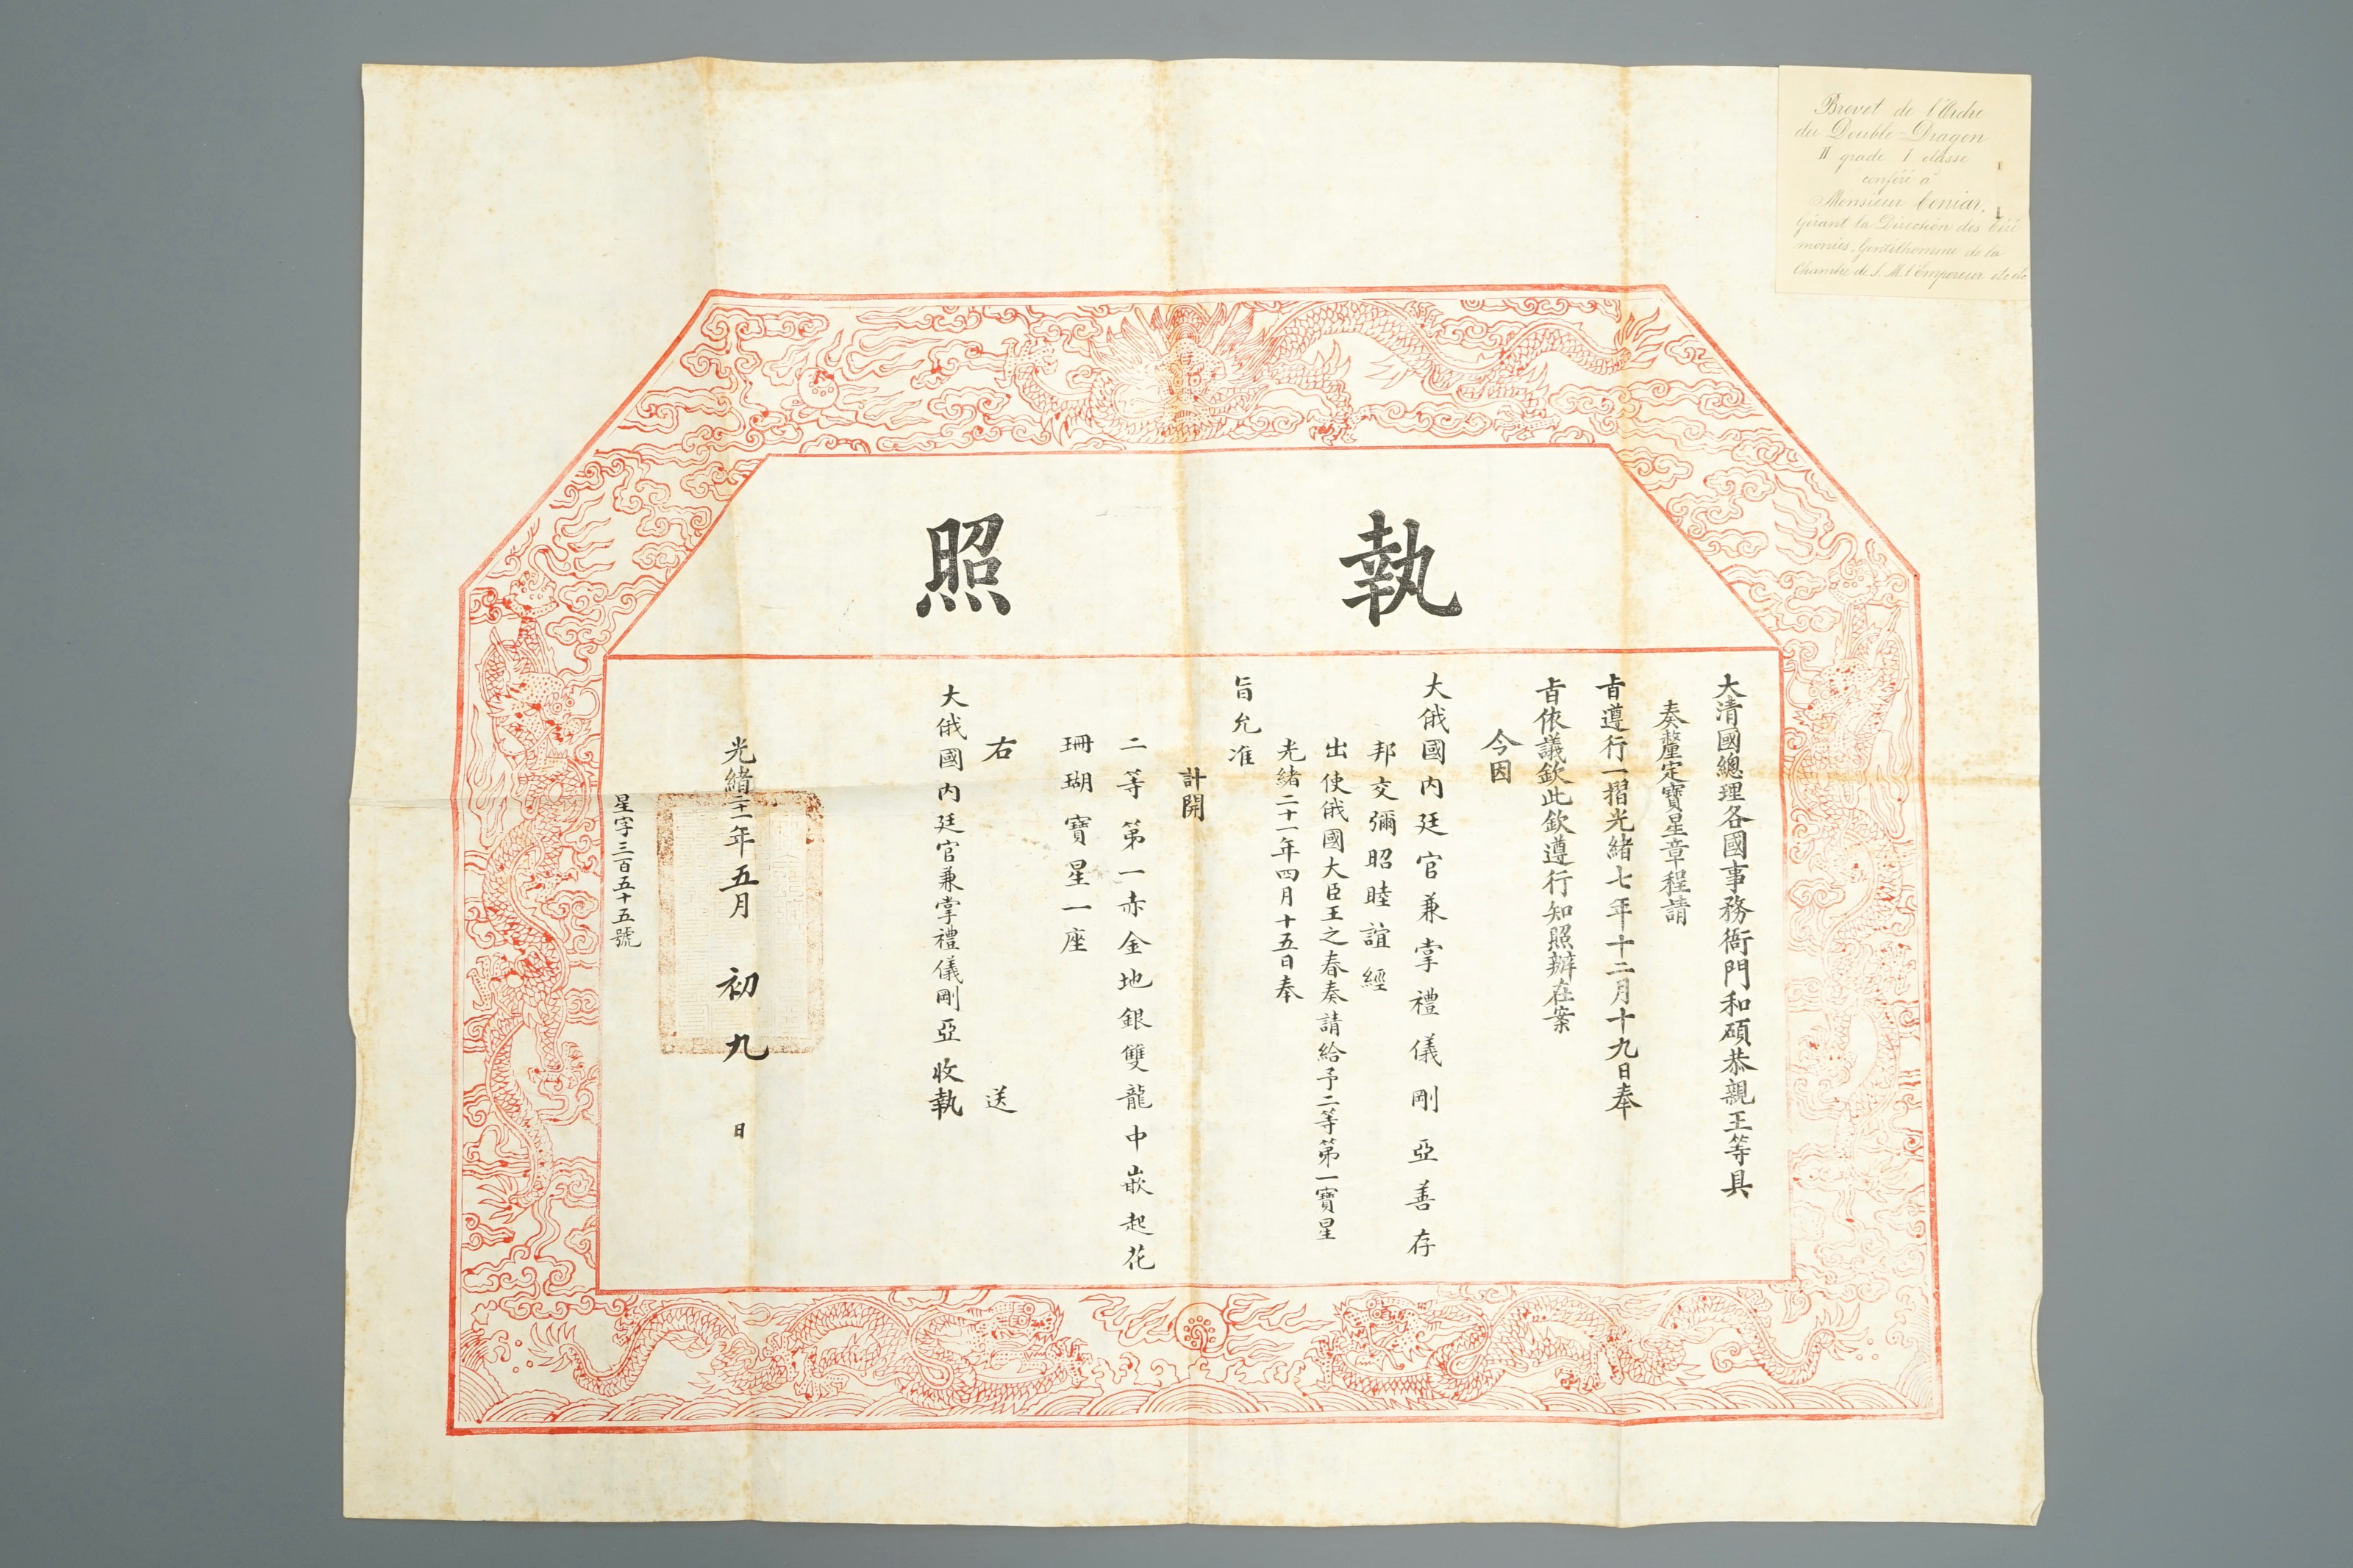 執照
大清國總理各國事務衙門和碩恭親王等具
奏釐定寶星章程請
旨遵行一摺光緒七年十二月十九日奉
旨依議欽此欽遵行知照辦在案
今因
大俄國內廷官兼掌禮儀剛亞善存
邦交彌昭睦誼經
出使俄國大臣王之春奏請給予二等第一寶星
光緒二十一年四月十五日奉
旨允准
計開
二等第一赤金地銀雙龍中嵌起花
珊瑚寶星一座
右 送
大俄國內廷官兼掌禮儀剛亞收執
光緒二十一年五月初九日
星字三百五十五號
Brevet de l'Ordre
du Double-Dragon
II grade I classe
conféré à
Monsieur
Gérant la Direction des Céré
monies, Gentilhomme de la
Chambre de S. M. l'Empereur etc etc